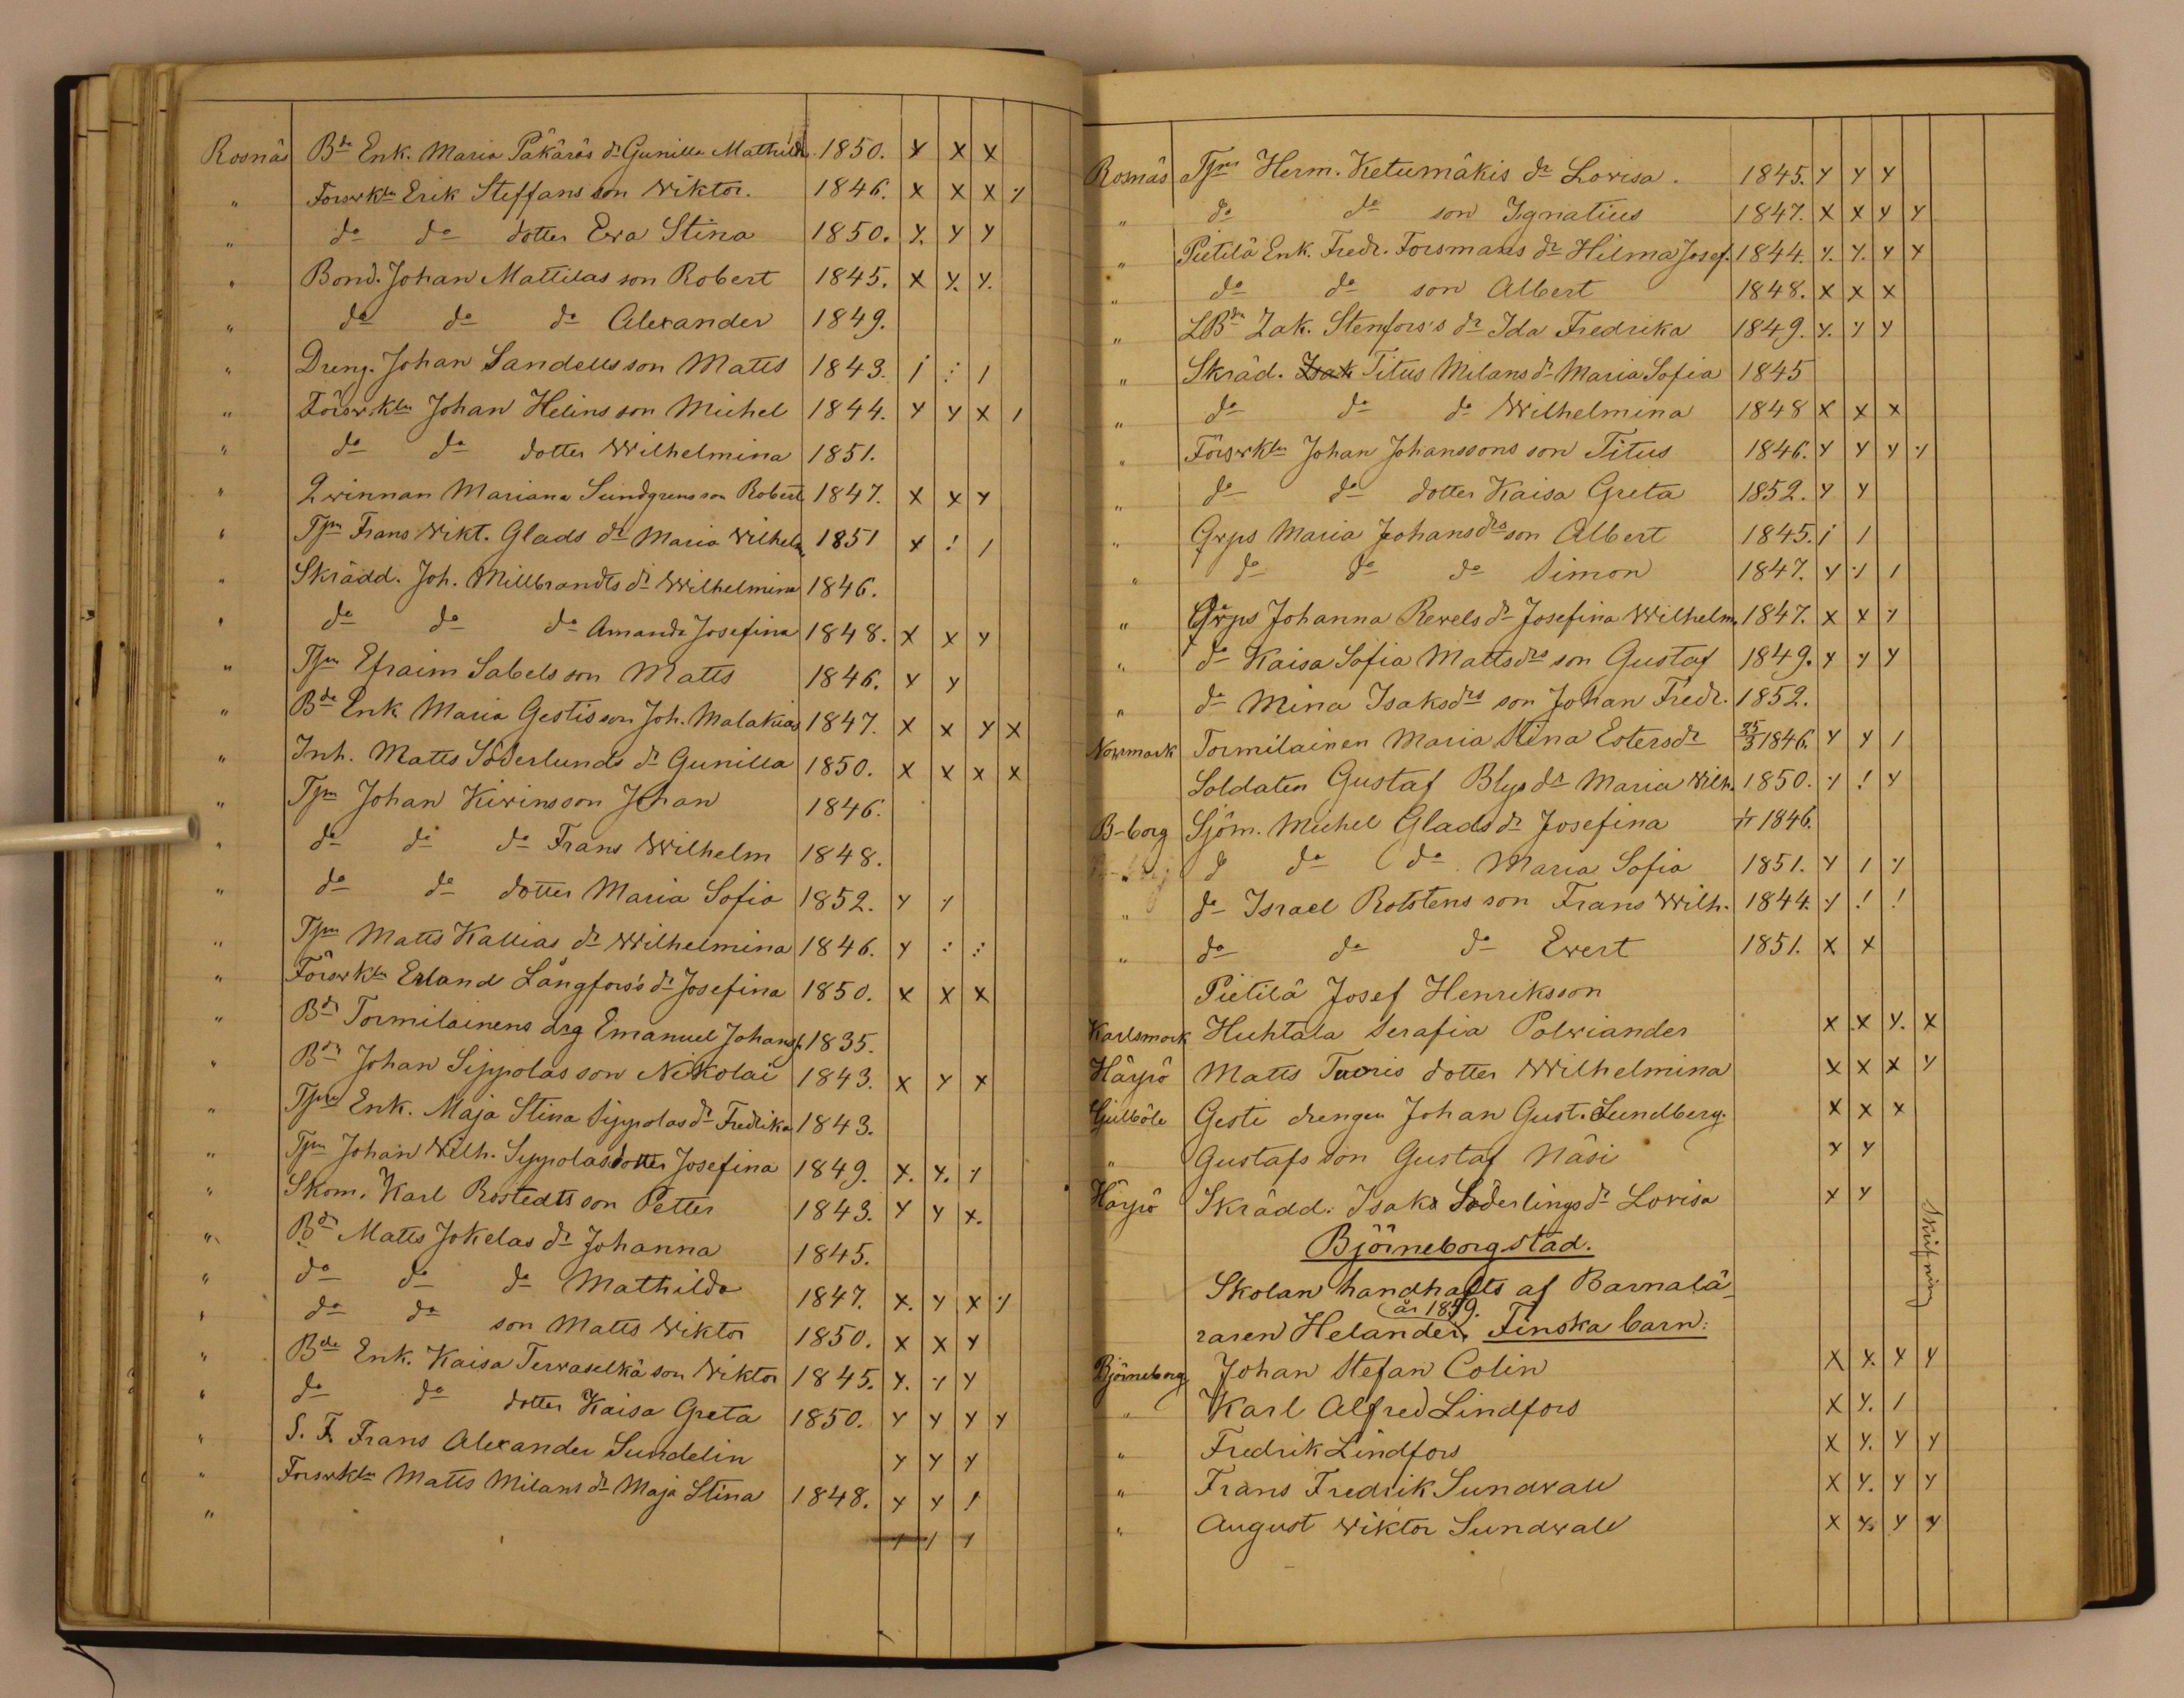 Rosnäs Bde Enk. Maria Päkäräs dr Gunilla Mathild. 1850. X X X
" Förswkln Erik Steffans son Wiktor. 1846. X X X ⁒
" do do dotter Ewa Stina 1850. Y. Y Y
" Bond. Johan Mattilas son Robert 1845. X Y. Y.
" do do do Alexander 1849.
" Dreng. Johan Sandells son Matts 1843. / : /
" Förswkln Johan Helins son Michel 1844. Y Y X /
" do do dotter Wilhelmina 1851.
" Qwinnan Mariana Sundgrens son Robert 1847. X X Y
" Tpn Frans Wikt. Glads dr Maria Wilhelm 1851 X ! /
" Skrädd. Joh. Millbrandts dr Wilhelmina 1846.
" do do do Amanda Josefina 1848. X X Y
" Tpn Efraim Sabels son Matts 1846. Y Y
" Bde Enk Maria Gestis son Joh. Malakias 1847. X X Y X
" Inh. Matts Söderlunds dr Gunilla 1850. X X X X
" Tpn Johan Kiwins son Johan 1846.
" do do do Frans Wilhelm 1848.
" do do dotter Maria Sofia 1852. Y ⁒
" Tpn Matts Kallias dr Wilhelmina 1846. Y : :
" Förswkln Erland Långfors's dr Josefina 1850. X X X
" Bdn Tormilainens drg Emanuel Johansf. 1835.
" Bdn Johan Sippolas son Nikolai 1843. X Y X
" Tpn Enk. Maja Stina Sippolas dr Fredrika 1843.
" Tpn Johan Wilh. Sippolas dotter Josefina 1849. X. Y. ⁒
" Skom. Karl Rostedts son Petter 1843. Y Y X.
" Bdn Matts Jokelas dr Johanna 1845.
" do do do Mathilda 1847. X. Y X ⁒
" do do son Matts Wiktor 1850. X X Y
" Bde Enk. Kaisa Terwaselkä son Wiktor 1845. Y. ⁒ Y
" do do dotter Kaisa Greta 1850. Y Y Y Y
" S. F. Frans Alexander Sundelin Y Y Y
" Förswkln Matts Milans dr Maja Stina 1848. Y Y !
"
Rosnäs Tpn Herm. Ketumäkis dr Lovisa. 1845. Y Y Y
" do do son Ignatius 1847. X X Y Y
" Pietilä Enk. Fredr. Forsmans dr Hilma Josef. 1844. Y. Y. Y Y
" do do son Albert 1848. X X X
" LBdn Zak. Stenfors's dr Ida Fredrika 1849. Y. ⁒ Y
" Skräd. Isak Titus Milans dr Maria Sofia 1845
" do do do Wilhelmina 1848 X X X
" Förswkln Johan Johanssons son Titus 1846. Y Y Y ⁒
" do do dotter Kaisa Greta 1852. Y Y
" Qvps Maria Johansdrs son Albert 1845. / /
" do do do Simon 1847. Y ⁒ /
" Qvps Johanna Rewels dr Josefina Wilhelm. 1847. X X ⁒
" do Kaisa Sofia Mattsdrs son Gustaf 1849. Y Y Y
" do Mina Isaksdrs son Johan Fredr. 1852.
Norrmark Tormilainen Maria Stina Estersdr 25/3 1846. Y Y /
Soldaten Gustaf Blys dr Maria Wilh. 1850. ⁒ ! Y
B-borg Sjöm. Michel Glads dr Josefina 1846.
do do do Maria Sofia 1851. Y / ⁒
" do Israel Rotstens son Frans Wilh. 1844. ⁒ ! !
" do do do Ewert 1851. X X
Pietilä Josef Henriksson
Karlsmark Huhtala Serafia Polwiander X X Y. X
Härpö Matts Tuoris dotter Wilhelmina X X X Y
Gesti drengen Johan Gust. Lundberg. X X X
" Gustafs son Gustaf Näsi Y Y
Härpö Skrädd. Isaks Söderlings dr Lovisa X Y
Skrifning
Björneborgs stad.
Skolan handhafts af Barnalä-
(år 1859.
raren Helander. Finska barn:
Björneborg Johan Stefan Colin X Y. Y Y
" Karl Alfred Lindfors X Y. /
" Fredrik Lindfors X Y. Y Y
" Frans Fredrik Sundvall X Y. Y Y
" August Wiktor Sundwall X Y. Y Y